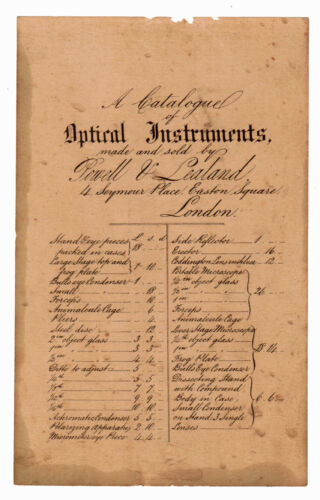 A Catalogue
of
Optical Instruments,
made and sold by
Powell & Lealand,
4, Seymour Place, Euston Square
London.
£ s d
Stand & eye pieces
packed in cases 18
Large Stage top and
frog plate 1 10
Bulls eye Condenser 1
Small 18
Forceps 10
Animalcule Cage 6
Pliers 4
Steel disc 12
2 in object glass 3 3
1 in 3
4 4
Ditto to adjust 5 5
5 5
7 7
9 9
10 10
Achromatic Condenser 5 5
Polarizing apparatus 2 10
Micrometer eye Piece 4 4
Side Reflector 1
Erector 16
Eddington Lens 12
Portable Microscope
object glass
1 in
26
Forceps
Animalcule Cage
Lever Stage Microscope
object glass
1 in
28 14
Frog Plate
Bulls Eye Condenser
Dissecting Stand
with Compound
Body in Case 6 6
Small Condenser
on Stand 3 Single
Lenses